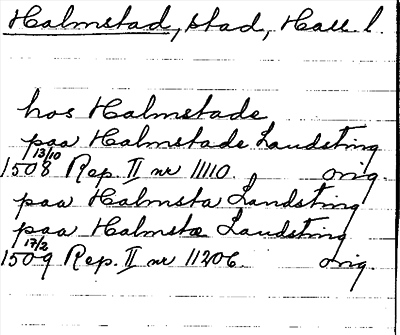 Halmstad, stad, Hall l.
hos Halmstade
paa Halmstade Landsting
1508 13/10 Rep. II nr 11110. orig.
paa Halmsta Landsting
paa Halmstæ Landsting
1509 17/2 Rep. II nr 11206. orig.